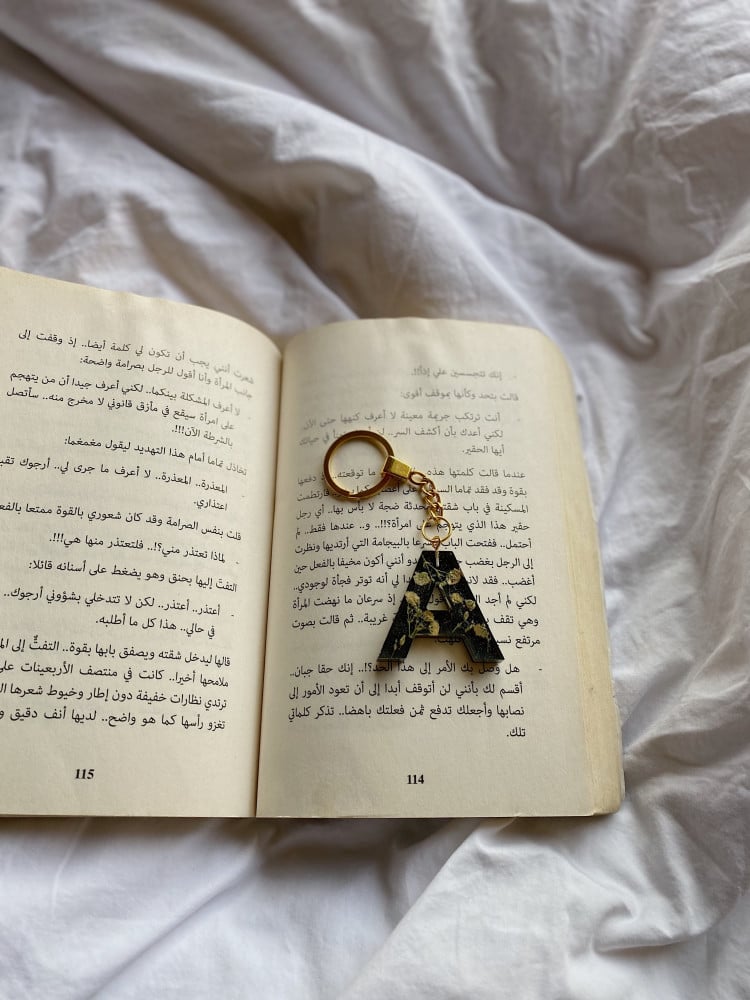 - إنك تتجسسين علي إذاً!!.
قالت بتحد وكأنها بموقف أقوى:
- أنت ترتكب جريمة معينة لا أعرف كنهها حتى الآن..
لكني أعدك بأن أكشف السر.. لن في حياتك
أيها الحقير.
عندما قالت كلمتها هذه ما توقعته.. دفعها
بقوة وقد فقد تماما على فارتطمت
المسكينة في باب محدثة ضجة لا بأس بها.. أي رجل
حقير هذا الذي امرأة؟!!.. و.. عندها فقط.. لم
أحتمل.. ففتحت الباب بالبيجامة التي أرتديها ونظرت
إلى الرجل بغضب أنني أكون مخيفا بالفعل حين
أغضب.. فقد لي أنه توتر فجأة لوجودي..
لكني لم أجد إذ سرعان ما نهضت المرأة
وهي تقف غريبة.. ثم قالت بصوت
مرتفع
- هل وصل بك الأمر إلى هذا الحد؟!.. إنك حقا جبان..
أقسم لك بأنني لن أتوقف أبدا إلى أن تعود الأمور إلى
نصابها وأجعلك تدفع ثمن فعلتك باهضا.. تذكر كلماتي
تلك.
114
شعرت أنني يجب أن تكون لي كلمة أيضا.. إذ وقفت إلى
جانب المرأة وأنا أقول للرجل بصرامة واضحة:
- لا أعرف المشكلة بينكما.. لكني أعرف جيدا أن من يتهجم
على امرأة سيقع في مأزق قانوني لا مخرج منه.. سأتصل
بالشرطة الآن!!!.
تخاذل تماما أمام هذا التهديد ليقول مغمغما:
- المعذرة.. المعذرة.. لا أعرف ما جرى لي.. أرجوك
اعتذاري.
قلت بنفس الصرامة وقد كان شعوري بالقوة ممتعا
- لماذا تعتذر مني؟!.. فلتعتذر منها هي!!!.
التفت إليها بحنق وهو يضغط على أسنانه قائلا:
- أعتذر.. أعتذر.. لكن لا تتدخلي بشؤوني أرجوك..
في حالي.. هذا كل ما أطلبه.
قالها ليدخل شقته ويصفق بابها بقوة.. التفتُّ إلى
ملامحها أخيرا.. كانت في منتصف الأربعينات
ترتدي نظارات خفيفة دون إطار وخيوط شعرها
تغزو رأسها كما هو واضح.. لديها أنف دقيق
115
A